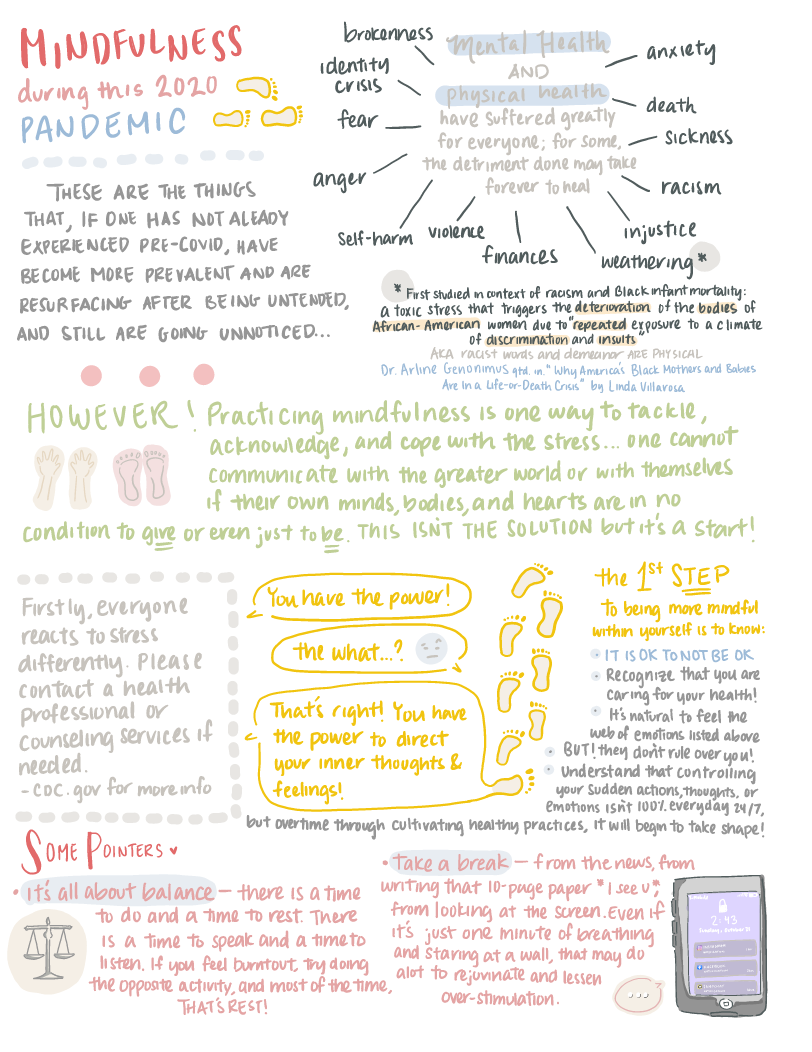 MINDFULNESS
during this 2020
PANDEMIC
THESE ARE THE THINGS
THAT, IF ONE HAS NOT ALEADY
EXPERIENCED PRE-COVID, HAVE
BECOME MORE PREVALENT AND ARE
RESURFACING AFTER BEING UNTENDED,
AND STILL ARE GOING UNNOTICED...
Mental Health
AND
physical health
have suffered greatly
for everyone; for some,
the detriment done may take
forever to heal
brokenness
identity
crisis
fear
anger
self-harm
violence
finances
weathering*
injustice
racism
sickness
death
anxiety
* First studied in context of racism and Black infant mortality:
a toxic stress that triggers the deterioration of the bodies of
African-American women due to "repeated exposure to a climate
of discrimination and insults"
AKA racist words and demeanor ARE PHYSICAL
Dr. Arline Genonimus qtd. in. "Why America's Black Mothers and Babies
Are In a Life-or-Death Crisis" by Linda Villarosa
HOWEVER! Practicing mindfulness is one way to tackle,
acknowledge, and cope with the stress... one cannot
communicate with the greater world or with themselves
if their own minds, bodies, and hearts are in no
condition to give or even just to be. THIS ISN'T THE SOLUTION but it's a start!
Firstly, everyone
reacts to stress
differently. Please
contact a health
professional or
counseling services if
needed.
- CDC.gov for more info
You have the power!
the what...?
That's right! You have
the power to direct
your inner thoughts &
feelings!
the 1st STEP
to being more mindful
within yourself is to know:
• IT IS OK TO NOT BE OK
• Recognize that you are
caring for your health!
• It's natural to feel the
web of emotions listed above
• BUT! they don't rule over you!
• Understand that controlling
your sudden actions, thoughts, or
emotions isn't 100% everyday 24/7,
but overtime through cultivating healthy practices, it will begin to take shape!
SOME POINTERS ♥
• it's all about balance - there is a time
to do and a time to rest. There
is a time to speak and a time to
listen. If you feel burntout, try doing
the opposite activity, and most of the time,
THAT'S REST!
• take a break - from the news, from
writing that 10-page paper *I see u*,
from looking at the screen. Even if
it's just one minute of breathing
and staring at a wall, that may do
alot to rejuvinate and lessen
over-stimulation.
2:43
...